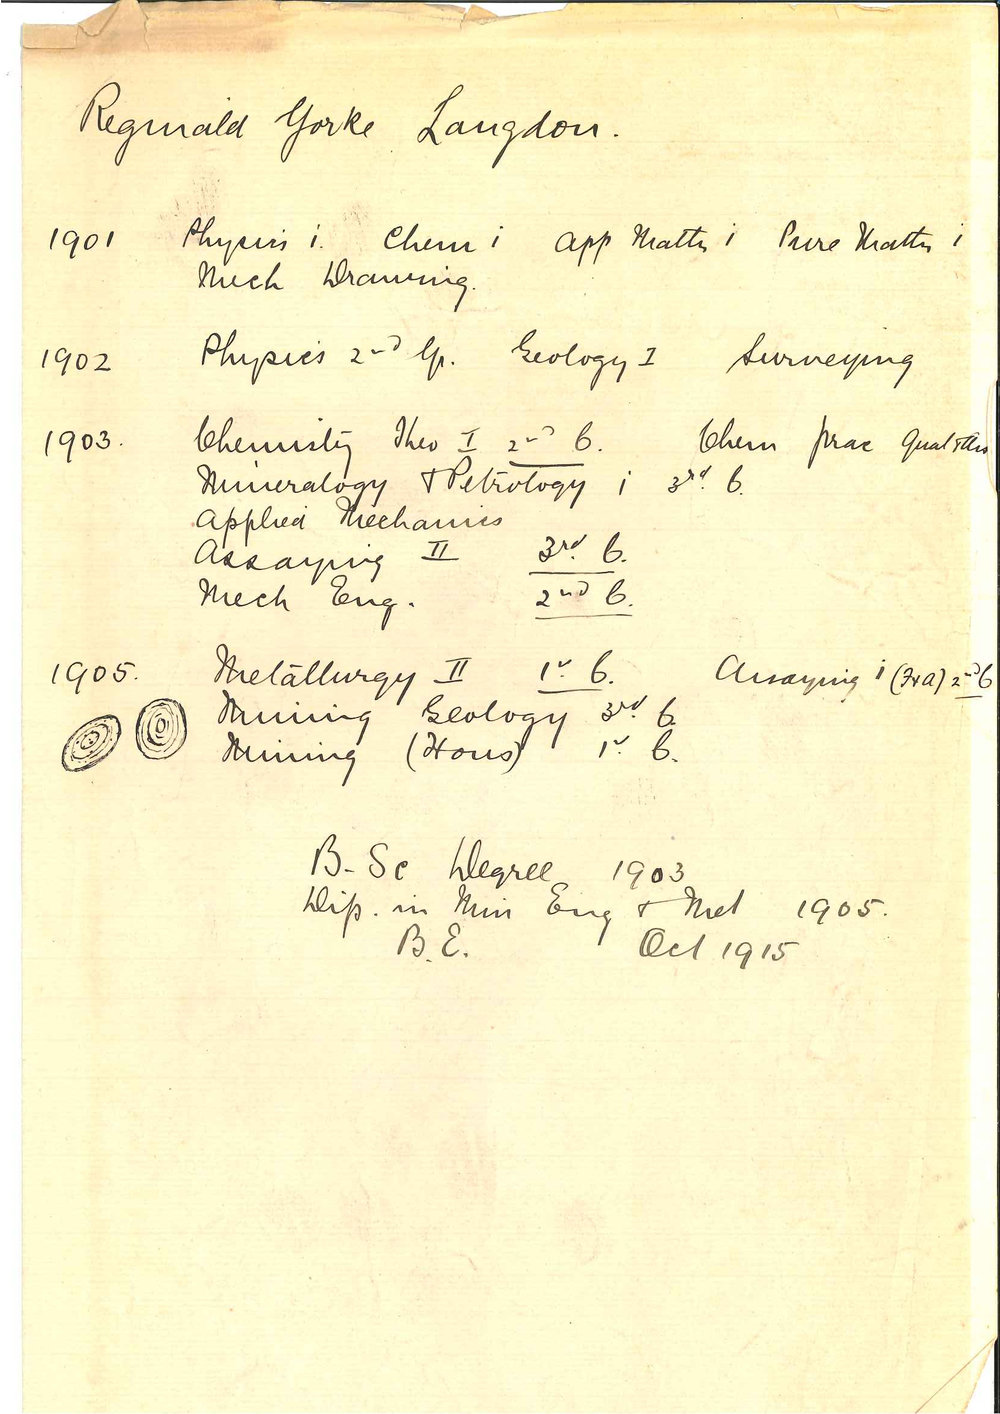 Reginald Yorke Langdon.
1901 Physics i. Chem i App Maths i Pure Maths i
Mech Drawing.
1902 Physics 2nd Gp. Geology I Surveying
1903. Chemistry Theo I 2nd C. Chem prac
Mineralogy & Petrology i 3rd C.
Applied Mechanics
Assaying II 3rd C.
Mech Eng. 2nd C.
1905. Metallurgy II 1st C. Assaying i 2nd C
Mining Geology 3rd C
Mining (Hons) 1st C.
B-Sc Degree 1903
Dip. in Min Eng & Met 1905.
B.E. Oct 1915